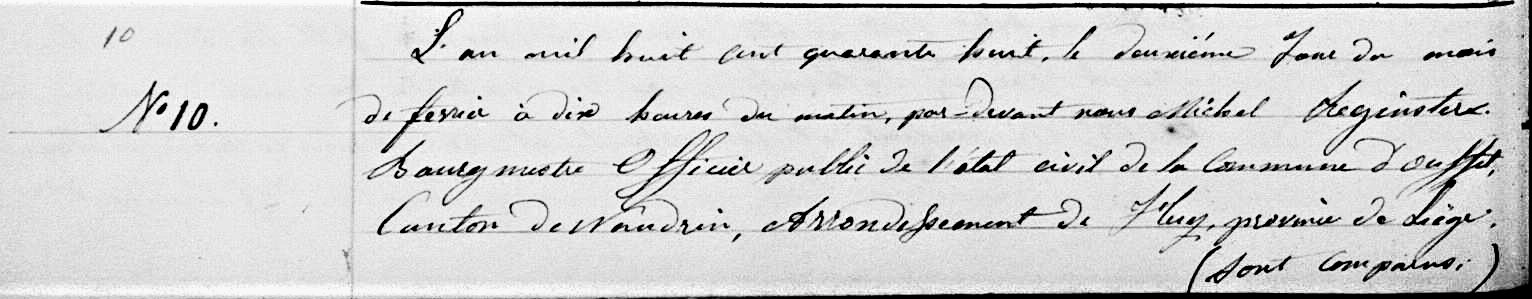 10
L'an mil huit cent quarante huit, le deuxiéme Jour du mois
N° 10.
de fevrier à dix heures du matin, par-devant nous Michel Reginster
Bourgmestre Officier public de l'état civil de la Commune d'ouffet,
Canton de Nandrin, Arrondissement de Huy, province de Liége.
(sont comparus:)